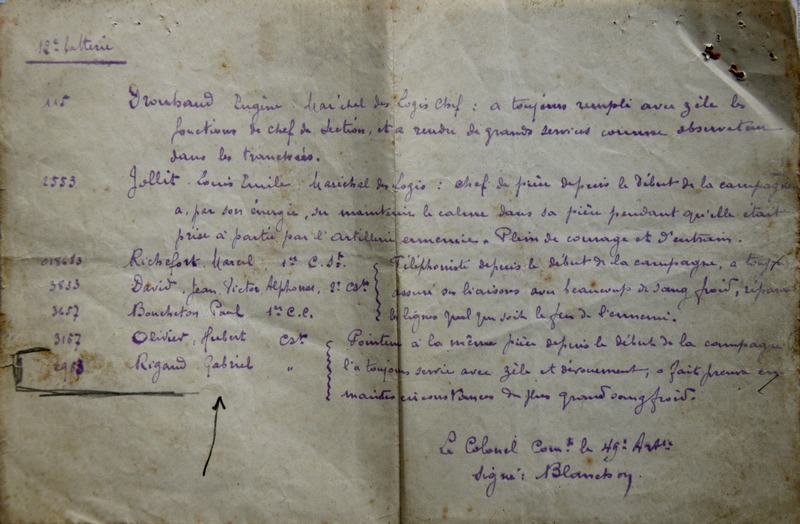 12e batterie
115 Drouhaud Eugène Maréchal des Logis Chef : a toujours rempli avec zèle les
fonctions de chef de Section, et a rendu de grands services comme observateur
dans les tranchées.
2553 Jollit Louis Emile Maréchal des Logis : chef de pièce depuis le début de la campagne
a, par son énergie, su maintenir le calme dans sa pièce pendant qu'elle était
prise à partie par l'artillerie ennemie. Plein de courage et d'entrain.
Richefort, Marcel 1er C. St. Téléphoniste depuis le début de la campagne, a toujours
3833 David, Jean, Victor Alphonse, 2e Cst assuré ses liaisons avec beaucoup de sang froid, réparant
3657 Boucheton Paul 1er C.C. les lignes quel que soit le feu de l'ennemi.
3157 Olivier, Hubert Cst Pointeur à la même pièce depuis le début de la campagne
2953 Rigaud Gabriel " l'a toujours servie avec zèle et dévouement, a fait preuve en
maintes circonstances du plus grand sang froid.
Le Colonel Comt le 49e Artie
Signé : Blanchon